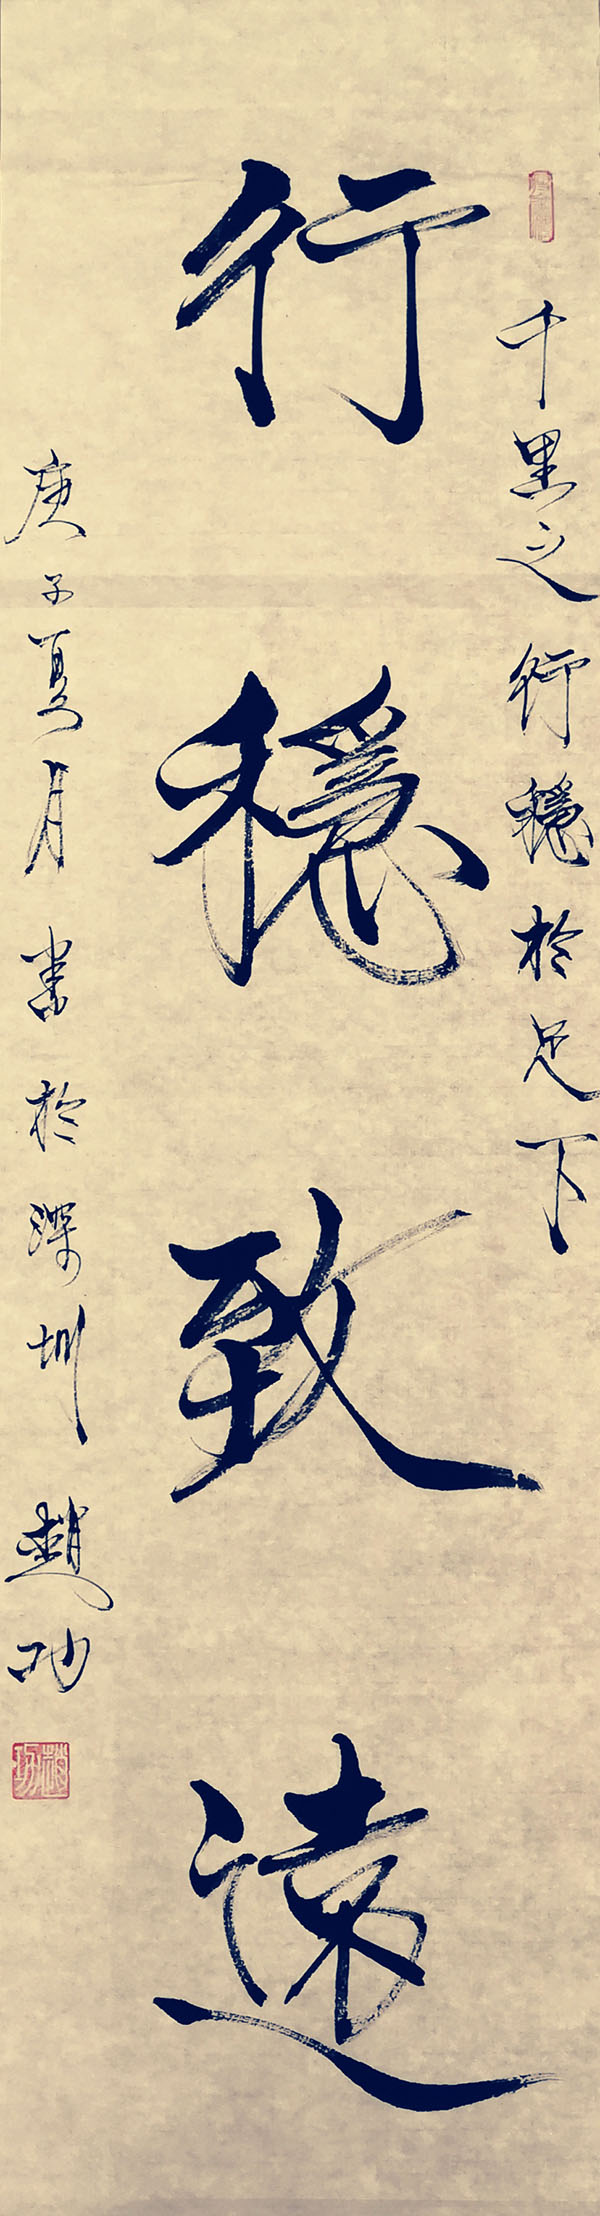 千里之行穩於足下
行穩致遠
庚子夏月書於深圳趙